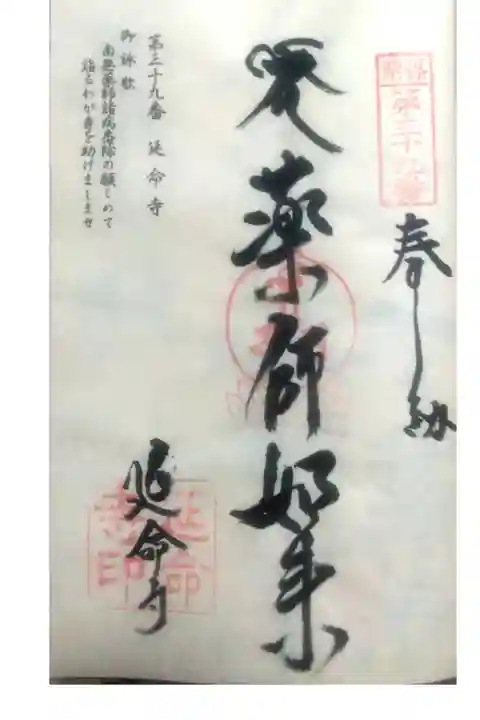 奉納
薬師如来
延命寺
第三十九番
第三十九番 延命寺
御詠歌
南無薬師諸病悉除の願こめて
詣るわが身を助けましませ
延命寺印